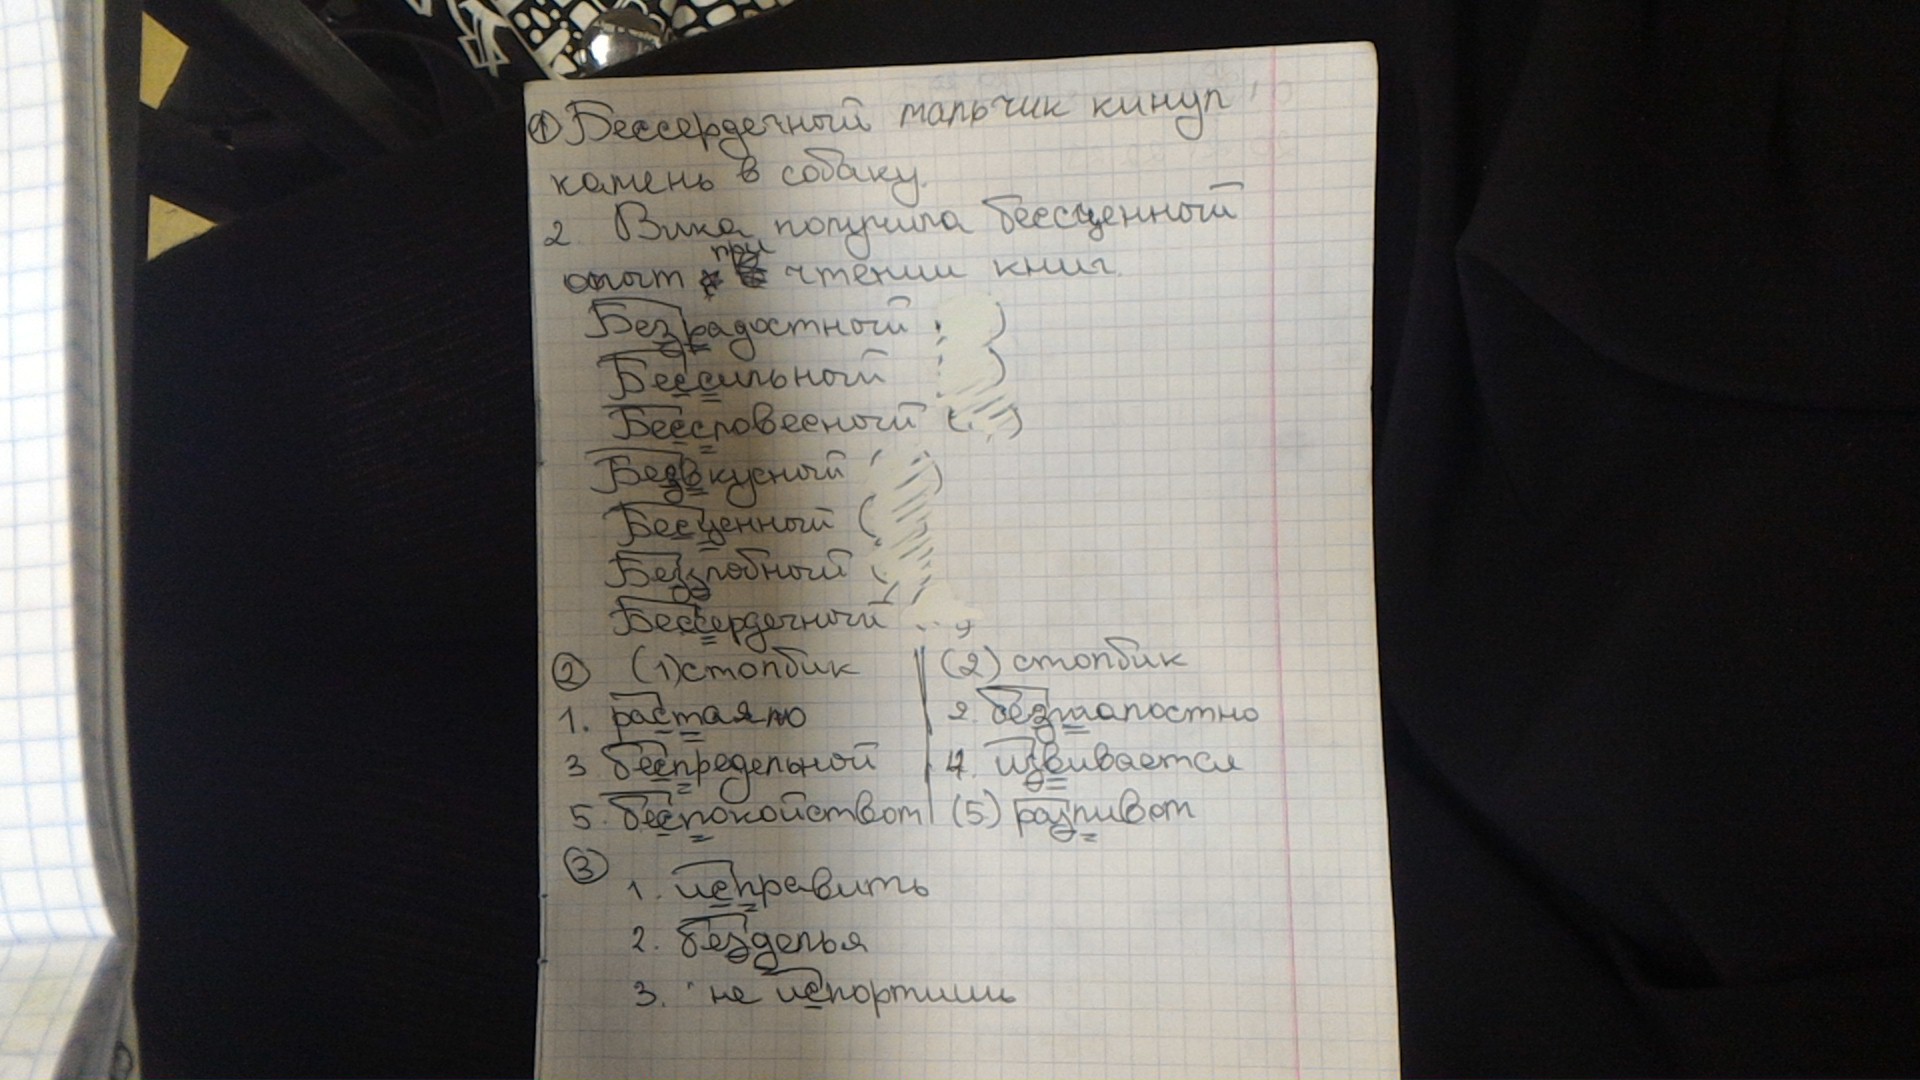 ① Бессердечный мальчик кинул
камень в собаку.
2. Вика получила бессценный
опыт при чтении книг.
Безрадостный
Бессильный
Бессловесный
Безвкусный
Бесценный
Беззлобный
Бессердечный
② (1) столбик (2) столбик
1. растаяло 2. безжалостно
3. беспредельной 4. извивается
5. беспокойством (5) разливом
③
1. исправить
2. безделья
3. не испортишь